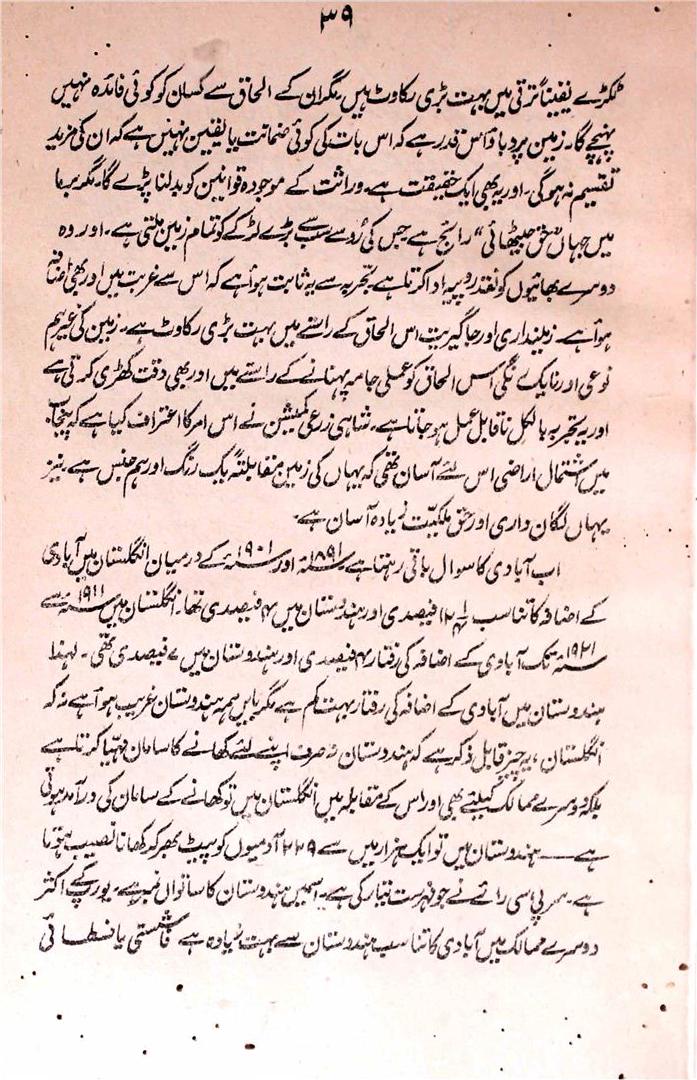 ۳۹
ٹکڑے یقیناً ترقی میں بہت بڑی رکاوٹ ہیں مگر ان کے الحاق سے کسان کو کوئی فائدہ نہیں
پہنچے گا۔ زمین پر دباؤ اس قدر ہے کہ اس بات کی کوئی ضمانت یا یقین نہیں ہے کہ ان کی مزید
تقسیم نہ ہوگی۔ اور یہ بھی ایک حقیقت ہے۔ وراثت کے موجودہ قوانین کو بدلنا پڑے گا۔ مگر برما
میں جہاں "حق جیٹھائی" رائج ہے جس کی رُو سے سب سے بڑے لڑکے کو تمام زمین ملتی ہے۔ اور وہ
دوسرے بھائیوں کو نقد روپیہ ادا کرتا ہے تجربہ سے یہ ثابت ہوا ہے کہ اس سے غربت میں اور بھی اضافہ
ہوا ہے۔ زمینداری اور جاگیریت اس الحاق کے راستے میں بہت بڑی رکاوٹ ہے۔ زمین کی غیر ہم
نوعی اور نایک رنگی اس الحاق کو عملی جامہ پہنانے کے راستے میں اور بھی دقت کھڑی کرتی ہے
اور یہ تجربہ بالکل ناقابل عمل ہو جاتا ہے۔ شاہی زرعی کمیشن نے اس امر کا اعتراف کیا ہے کہ پنجاب
میں اشتمال اراضی اس لئے آسان تھی کہ یہاں کی زمین مقابلتہً یک رنگ اور ہم جنس ہے۔ نیز
یہاں لگان داری اور حق ملکیت زیادہ آسان ہے۔
اب آبادی کا سوال باقی رہتا ہے ۱۸۹۱ء اور ۱۹۰۱ء کے درمیان انگلستان میں آبادی
کے اضافہ کا تناسب ۱۲ ۱/۴ فیصدی اور ہندوستان میں ۴ فیصدی تھا۔ انگلستان میں ۱۹۱۱ء سے
۱۹۲۱ء تک آبادی کے اضافہ کی رفتار ۴ فیصدی اور ہندوستان میں ۷ فیصدی تھی۔ لہذا
ہندوستان میں آبادی کے اضافہ کی رفتار بہت کم ہے مگر بایں ہمہ ہندوستان غریب ہوا ہے نہ کہ
انگلستان، یہ چیز قابل ذکر ہے کہ ہندوستان نہ صرف اپنے لئے کھانے کا سامان مہیا کرتا ہے
بلکہ دوسرے ممالک کیلئے بھی اور اس کے مقابلہ میں انگلستان میں تو کھانے کے سامان کی درآمد ہوتی
ہے — ہندوستان میں تو ایک ہزار میں سے ۲۳۹ آدمیوں کو پیٹ بھر کر کھانا نصیب ہوتا
ہے۔ سر پی سی رائے نے جو فہرست تیار کی ہے۔ اسمیں ہندوستان کا ساتواں نمبر ہے۔ یورپ کے اکثر
دوسرے ممالک میں آبادی کا تناسب ہندوستان سے بہت زیادہ ہے فاشستی یا فسطائی